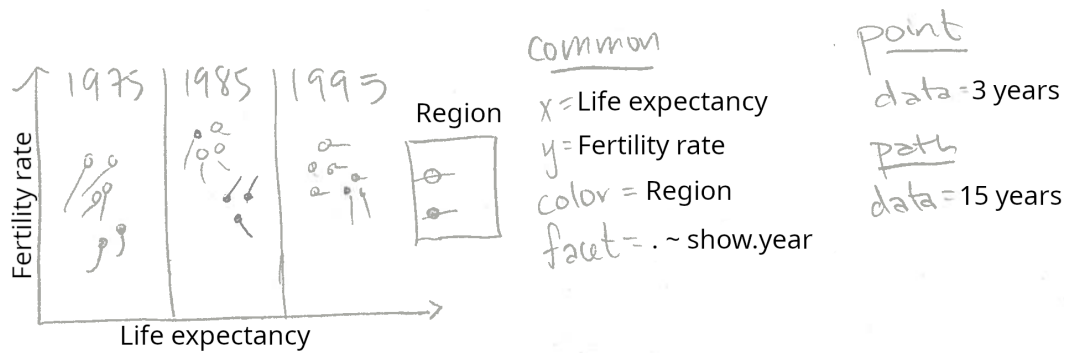 1975 1985 1995
Region
Fertility rate
Life expectancy
common
x = Life expectancy
y = Fertility rate
color = Region
facet = . ~ show.year
point
data = 3 years
path
data = 15 years